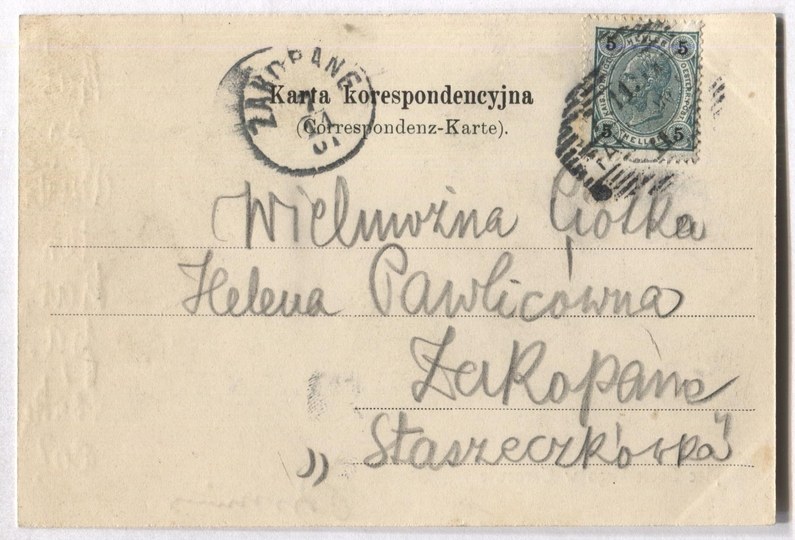 ZAKOPANE
Karta korespondencyjna
(Correspondenz-Karte).
5 HELLER 5
5 HELLER 5
Wielmożna Ciotka
Helena Pawlicówna
Zakopane
„Staszeczkówka"